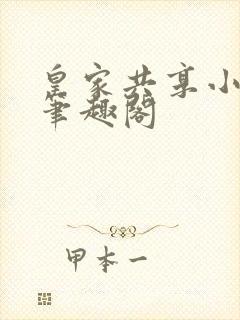 皇家共享小
笔趣阁
甲本一